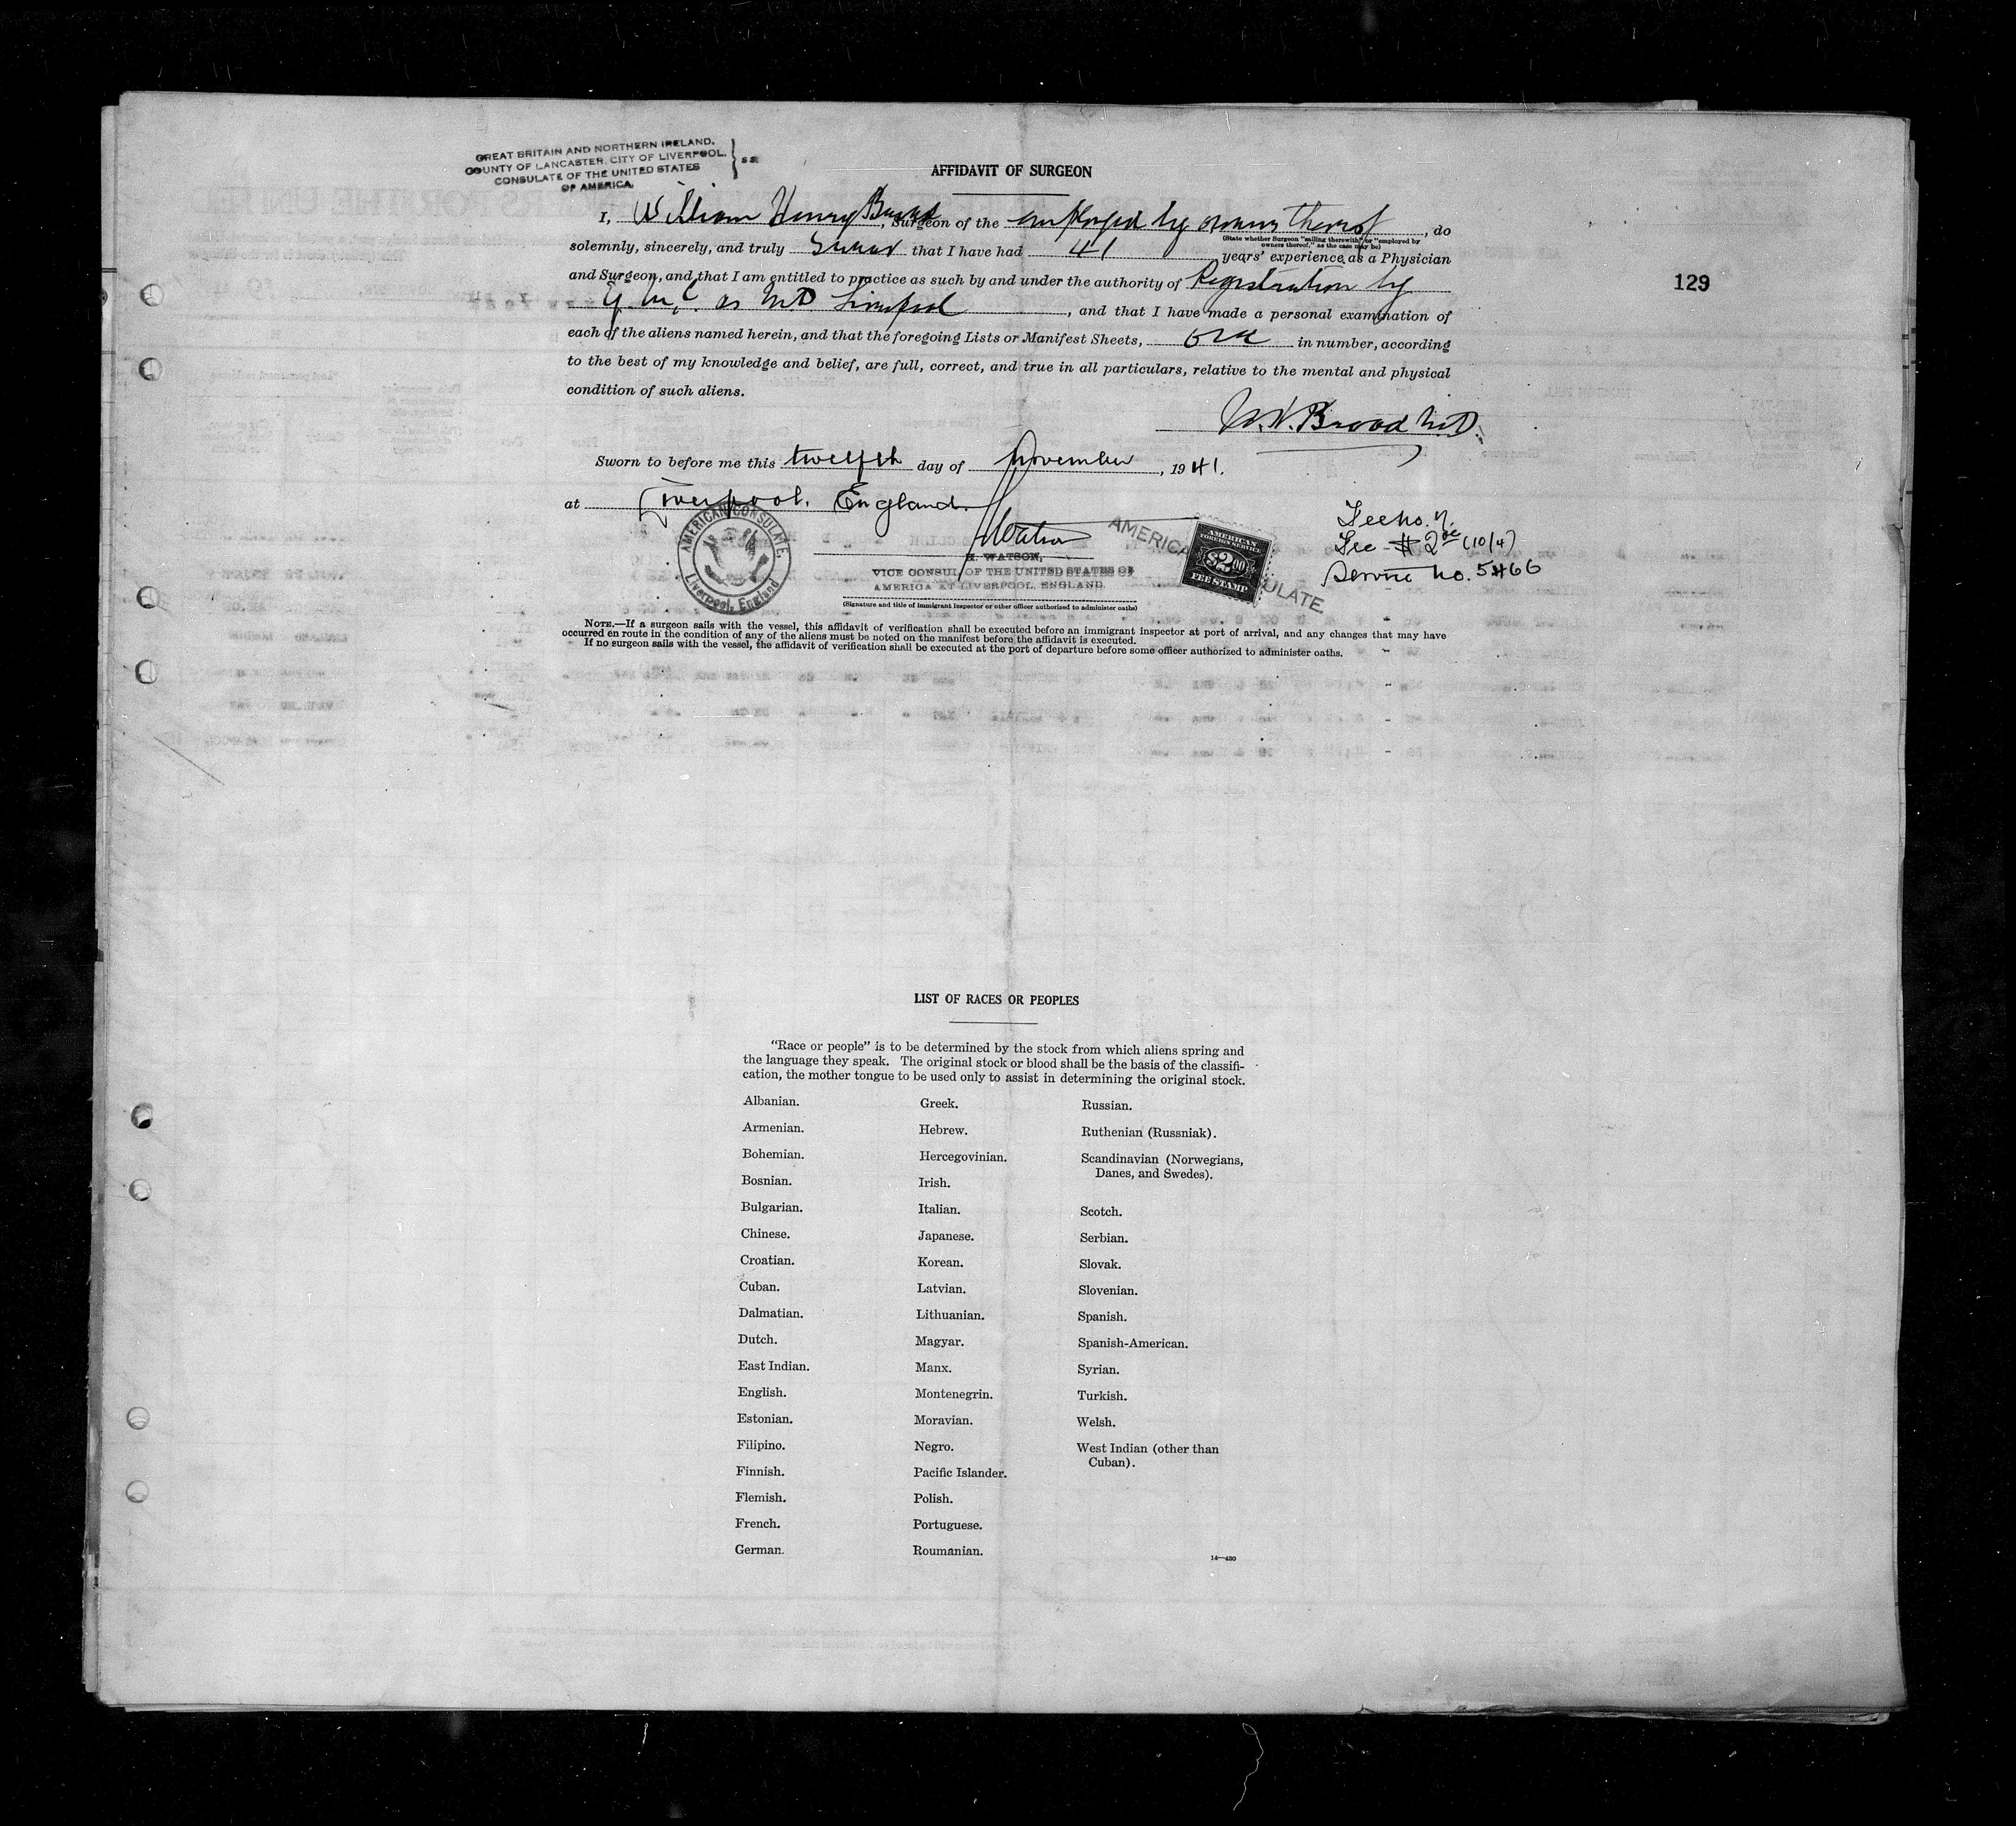 GREAT BRITAIN AND NORTHERN IRELAND,
COUNTY OF LANCASTER, CITY OF LIVERPOOL.
CONSULATE OF THE UNITED STATES
OF AMERICA.
} SS
AFFIDAVIT OF SURGEON
I, William Henry Broad, Surgeon of the employed by owners thereof, do
(State whether Surgeon "sailing therewith" or "employed by
owners thereof," as the case may be)
solemnly, sincerely, and truly swear that I have had 41 years' experience as a Physician
and Surgeon, and that I am entitled to practice as such by and under the authority of Registration by
G.M.C. as M.D. Liverpool, and that I have made a personal examination of
each of the aliens named herein, and that the foregoing Lists or Manifest Sheets, one in number, according
to the best of my knowledge and belief, are full, correct, and true in all particulars, relative to the mental and physical
condition of such aliens.
W.H. Broad M.D.
Sworn to before me this twelfth day of November, 1941.
at Liverpool, England.
129
AMERICAN CONSULATE
Liverpool, England
Watson
H. WATSON,
VICE CONSUL OF THE UNITED STATES OF
AMERICA AT LIVERPOOL, ENGLAND
(Signature and title of immigrant inspector or other officer authorized to administer oaths)
AMERICA ULATE
AMERICAN
FOREIGN SERVICE
$2.00
FEE STAMP
Fee No. 7.
Fee - $2.00 (10/4)
Service No. 5466
NOTE.—If a surgeon sails with the vessel, this affidavit of verification shall be executed before an immigrant inspector at port of arrival, and any changes that may have
occurred en route in the condition of any of the aliens must be noted on the manifest before the affidavit is executed.
If no surgeon sails with the vessel, the affidavit of verification shall be executed at the port of departure before some officer authorized to administer oaths.
LIST OF RACES OR PEOPLES
"Race or people" is to be determined by the stock from which aliens spring and
the language they speak. The original stock or blood shall be the basis of the classifi-
cation, the mother tongue to be used only to assist in determining the original stock.
Albanian.
Armenian.
Bohemian.
Bosnian.
Bulgarian.
Chinese.
Croatian.
Cuban.
Dalmatian.
Dutch.
East Indian.
English.
Estonian.
Filipino.
Finnish.
Flemish.
French.
German.
Greek.
Hebrew.
Hercegovinian.
Irish.
Italian.
Japanese.
Korean.
Latvian.
Lithuanian.
Magyar.
Manx.
Montenegrin.
Moravian.
Negro.
Pacific Islander.
Polish.
Portuguese.
Roumanian.
Russian.
Ruthenian (Russniak).
Scandinavian (Norwegians,
Danes, and Swedes).
Scotch.
Serbian.
Slovak.
Slovenian.
Spanish.
Spanish-American.
Syrian.
Turkish.
Welsh.
West Indian (other than
Cuban).
14—430